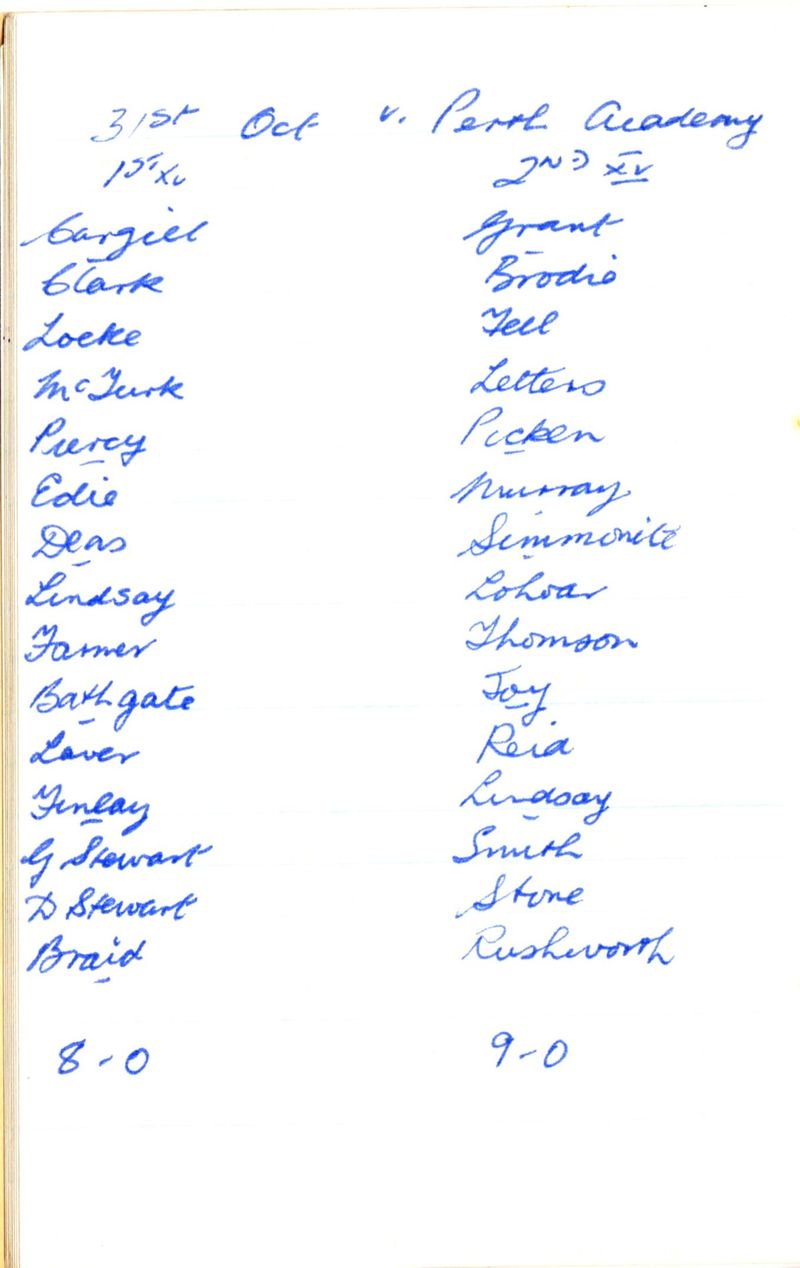 31st Oct v. Perth Academy
1st XV 2ND XV
Cargill Grant
Clark Brodie
Locke Fell
McTurk Letters
Piercy Picken
Edie Murray
Deas Simmonite
Lindsay
Farmer Thomson
Bathgate Joy
Laver Reid
Finlay Lindsay
G Stewart Smith
D Stewart Stone
Braid Rushworth
8-0 9-0